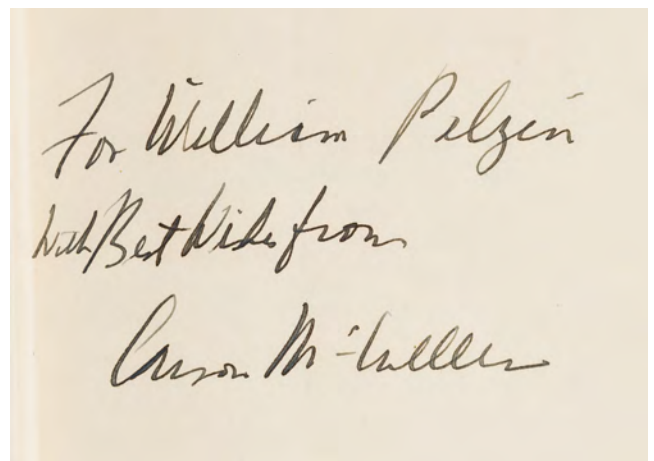 For William Pelzin
With Best Wishes from
Carson McCullers